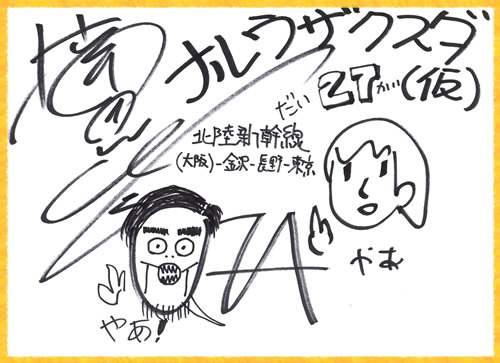 ナルウザクスダ
だい 27かい(仮)
北陸新幹線
(大阪)-金沢-長野-東京
やあ
やあ!